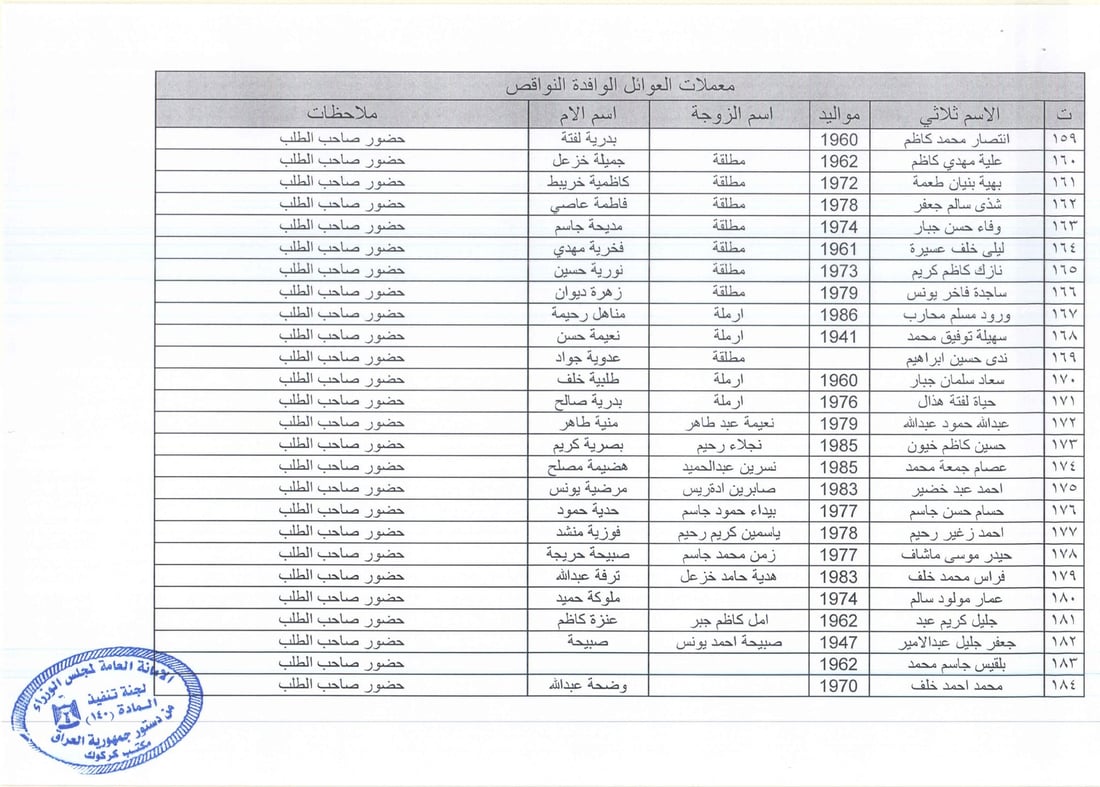 معملات العوائل الوافدة النواقص
ت الاسم ثلاثي مواليد اسم الزوجة اسم الام ملاحظات
١٥٩ انتصار محمد كاظم 1960 بدرية لفتة حضور صاحب الطلب
١٦٠ علية مهدي كاظم 1962 مطلقة جميلة خزعل حضور صاحب الطلب
١٦١ بهية بنيان طعمة 1972 مطلقة كاظمية خريبط حضور صاحب الطلب
١٦٢ شذى سالم جعفر 1978 مطلقة فاطمة عاصي حضور صاحب الطلب
١٦٣ وفاء حسن جبار 1974 مطلقة مديحة جاسم حضور صاحب الطلب
١٦٤ ليلى خلف عسيرة 1961 مطلقة فخرية مهدي حضور صاحب الطلب
١٦٥ نازك كاظم كريم 1973 مطلقة نورية حسين حضور صاحب الطلب
١٦٦ ساجدة فاخر يونس 1979 مطلقة زهرة ديوان حضور صاحب الطلب
١٦٧ ورود مسلم محارب 1986 ارملة مناهل رحيمة حضور صاحب الطلب
١٦٨ سهيلة توفيق محمد 1941 ارملة نعيمة حسن حضور صاحب الطلب
١٦٩ ندى حسين ابراهيم مطلقة عدوية جواد حضور صاحب الطلب
١٧٠ سعاد سلمان جبار 1960 ارملة طلبية خلف حضور صاحب الطلب
١٧١ حياة لفتة هذال 1976 ارملة بدرية صالح حضور صاحب الطلب
١٧٢ عبدالله حمود عبدالله 1979 نعيمة عبد طاهر منية طاهر حضور صاحب الطلب
١٧٣ حسين كاظم خيون 1985 نجلاء رحيم بصرية كريم حضور صاحب الطلب
١٧٤ عصام جمعة محمد 1985 نسرين عبدالحميد هضيمة مصلح حضور صاحب الطلب
١٧٥ احمد عبد خضير 1983 صابرين ادتريس مرضية يونس حضور صاحب الطلب
١٧٦ حسام حسن جاسم 1977 بيداء حمود جاسم حدية حمود حضور صاحب الطلب
١٧٧ احمد زغير رحيم 1978 ياسمين كريم رحيم فوزية منشد حضور صاحب الطلب
١٧٨ حيدر موسى ماشاف 1977 زمن محمد جاسم صبيحة حريجة حضور صاحب الطلب
١٧٩ فراس محمد خلف 1983 هدية حامد خزعل ترفة عبدالله حضور صاحب الطلب
١٨٠ عمار مولود سالم 1974 ملوكة حميد حضور صاحب الطلب
١٨١ جليل كريم عبد 1962 امل كاظم جبر عنزة كاظم حضور صاحب الطلب
١٨٢ جعفر جليل عبدالامير 1947 صبيحة احمد يونس صبيحة حضور صاحب الطلب
١٨٣ بلقيس جاسم محمد 1962 حضور صاحب الطلب
١٨٤ محمد احمد خلف 1970 وضحة عبدالله حضور صاحب الطلب
الامانة العامة لمجلس الوزراء
لجنة تنفيذ
المادة (١٤٠)
من دستور جمهورية العراق
مكتب كركوك